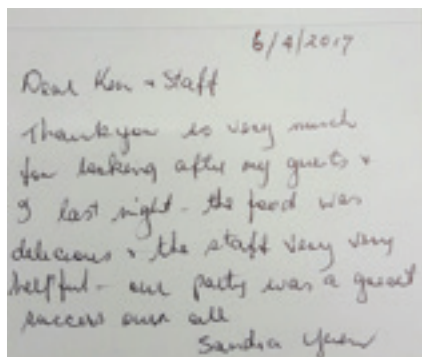 6/4/2017
Dear Ken & Staff
Thankyou so very much
for looking after my guests &
I last night - the food was
delicious & the staff very very
helpful - our party was a great
success over all
Sandra